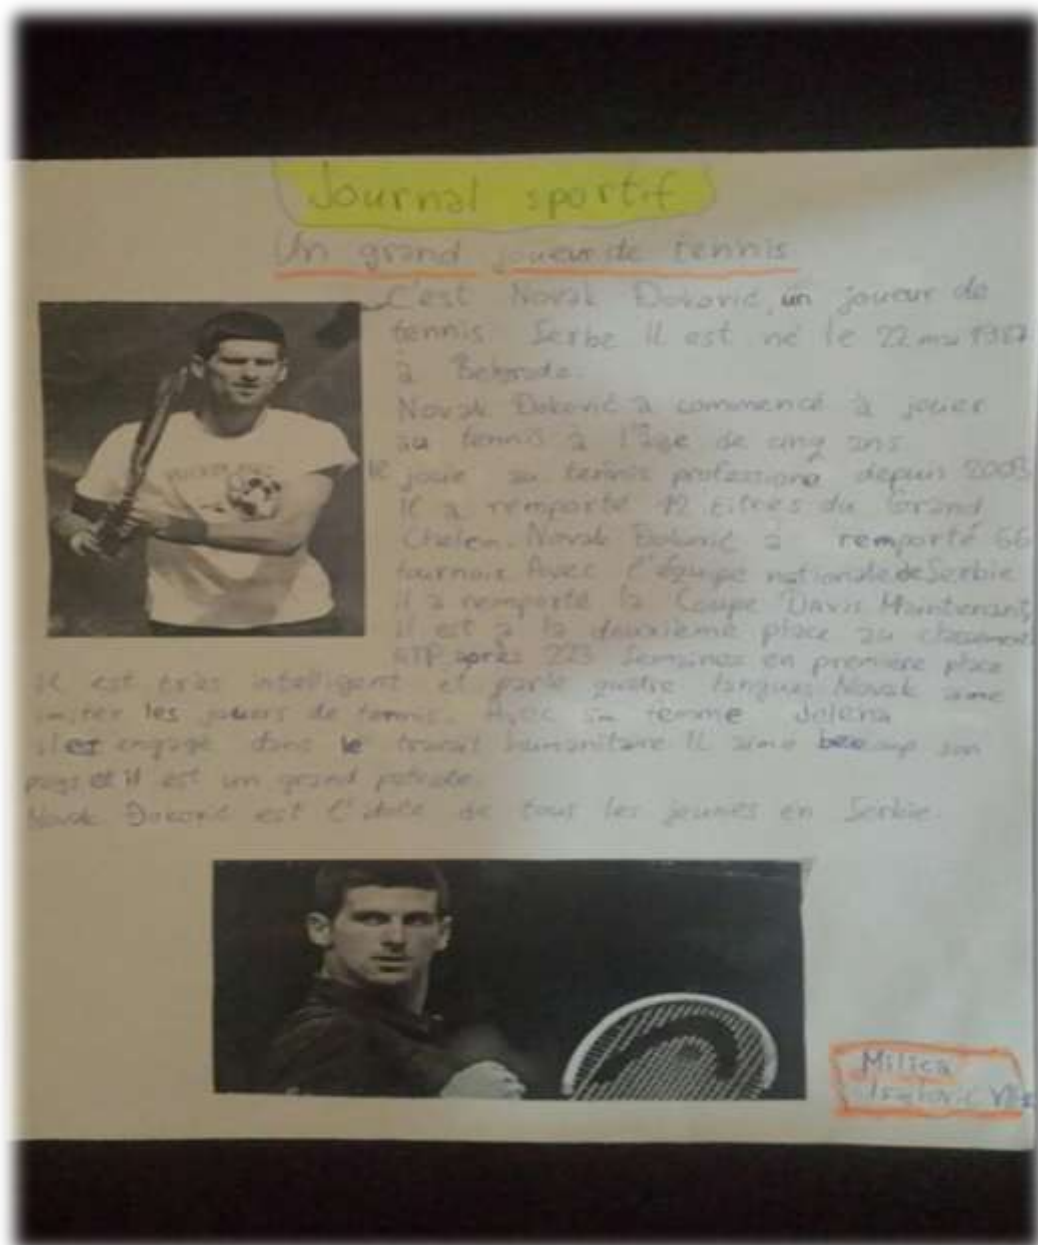 Journal sportif
Un grand joueur de tennis
C'est Novak Đoković, un joueur de
tennis Serbe Il est né le 22 mai 1987
à Belgrade.
Novak Đoković a commencé à jouer
au tennis à l'âge de cinq ans
Il joue au tennis depuis 2003
Il a remporté 12 titres du Grand
Chelem. Novak Đoković a remporté 66
tournois Avec l'équipe nationale de Serbie
il a remporté la Coupe Davis Maintenant,
il est à la deuxième place au
ATP après 223 semaines en première place
Il est très intelligent et parle quatre langues Novak aime
imiter les de tennis. Avec sa femme Jelena
engagé dans le travail humanitaire Il aime son
pays et il est un grand patriote.
Novak Đoković est l'idole de tous les jeunes en Serbie.
Milica